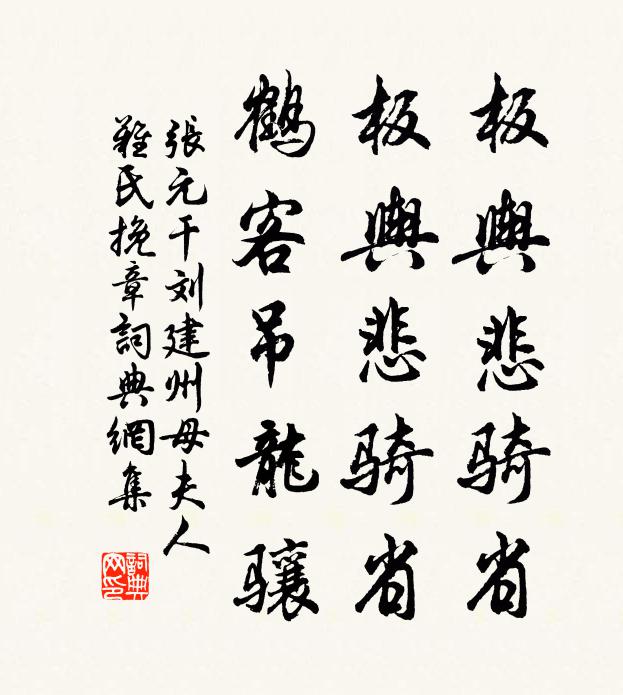 板輿悲骑省
板輿悲骑省
鶴客吊龍骧
張元干刘建州母夫人
難氏挽章詞典網集
詞典网印